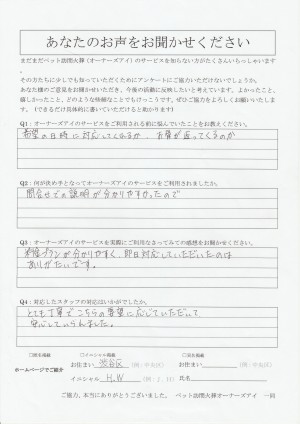 あなたのお声をお聞かせください
まだまだペット訪問火葬(オーナーズアイ)のサービスを知らない方がたくさんいらっしゃいます。
その方たちに少しでも知っていただくためにアンケートにご協力いただけないでしょうか。
あなた様のご意見をお聞かせいただき、今後の活動に反映したいと考えています。よかったこと、
嬉しかったこと、どのような些細なことでもけっこうです。ぜひご協力をよろしくお願いいたします。
(できるだけ具体的に書いていただけると助かります)
Q1:オーナーズアイのサービスをご利用される前に悩んでいたことをお教えください。
希望の日時に対応してくれるか、お骨が返ってくるのか
Q2:何が決め手となってオーナーズアイのサービスをご利用されましたか。
問合せでの説明が分かりやすかったので
Q3:オーナーズアイのサービスを実際にご利用なさってみての感想をお聞かせください。
プランが分かりやすく、即日対応していただいたのは
ありがたいです。
Q4:対応したスタッフの対応はいかがでしたか。
とても丁寧でこちらの要望に応じていただいて
安心していられました。
□イニシャル掲載
お住まい 渋谷区 (例:中央区) お住まい (例:中央区)
ホームページでご紹介
イニシャル H.W (例:J.H) 氏名
ご協力、本当にありがとうございました。 ペット訪問火葬オーナーズアイ 一同